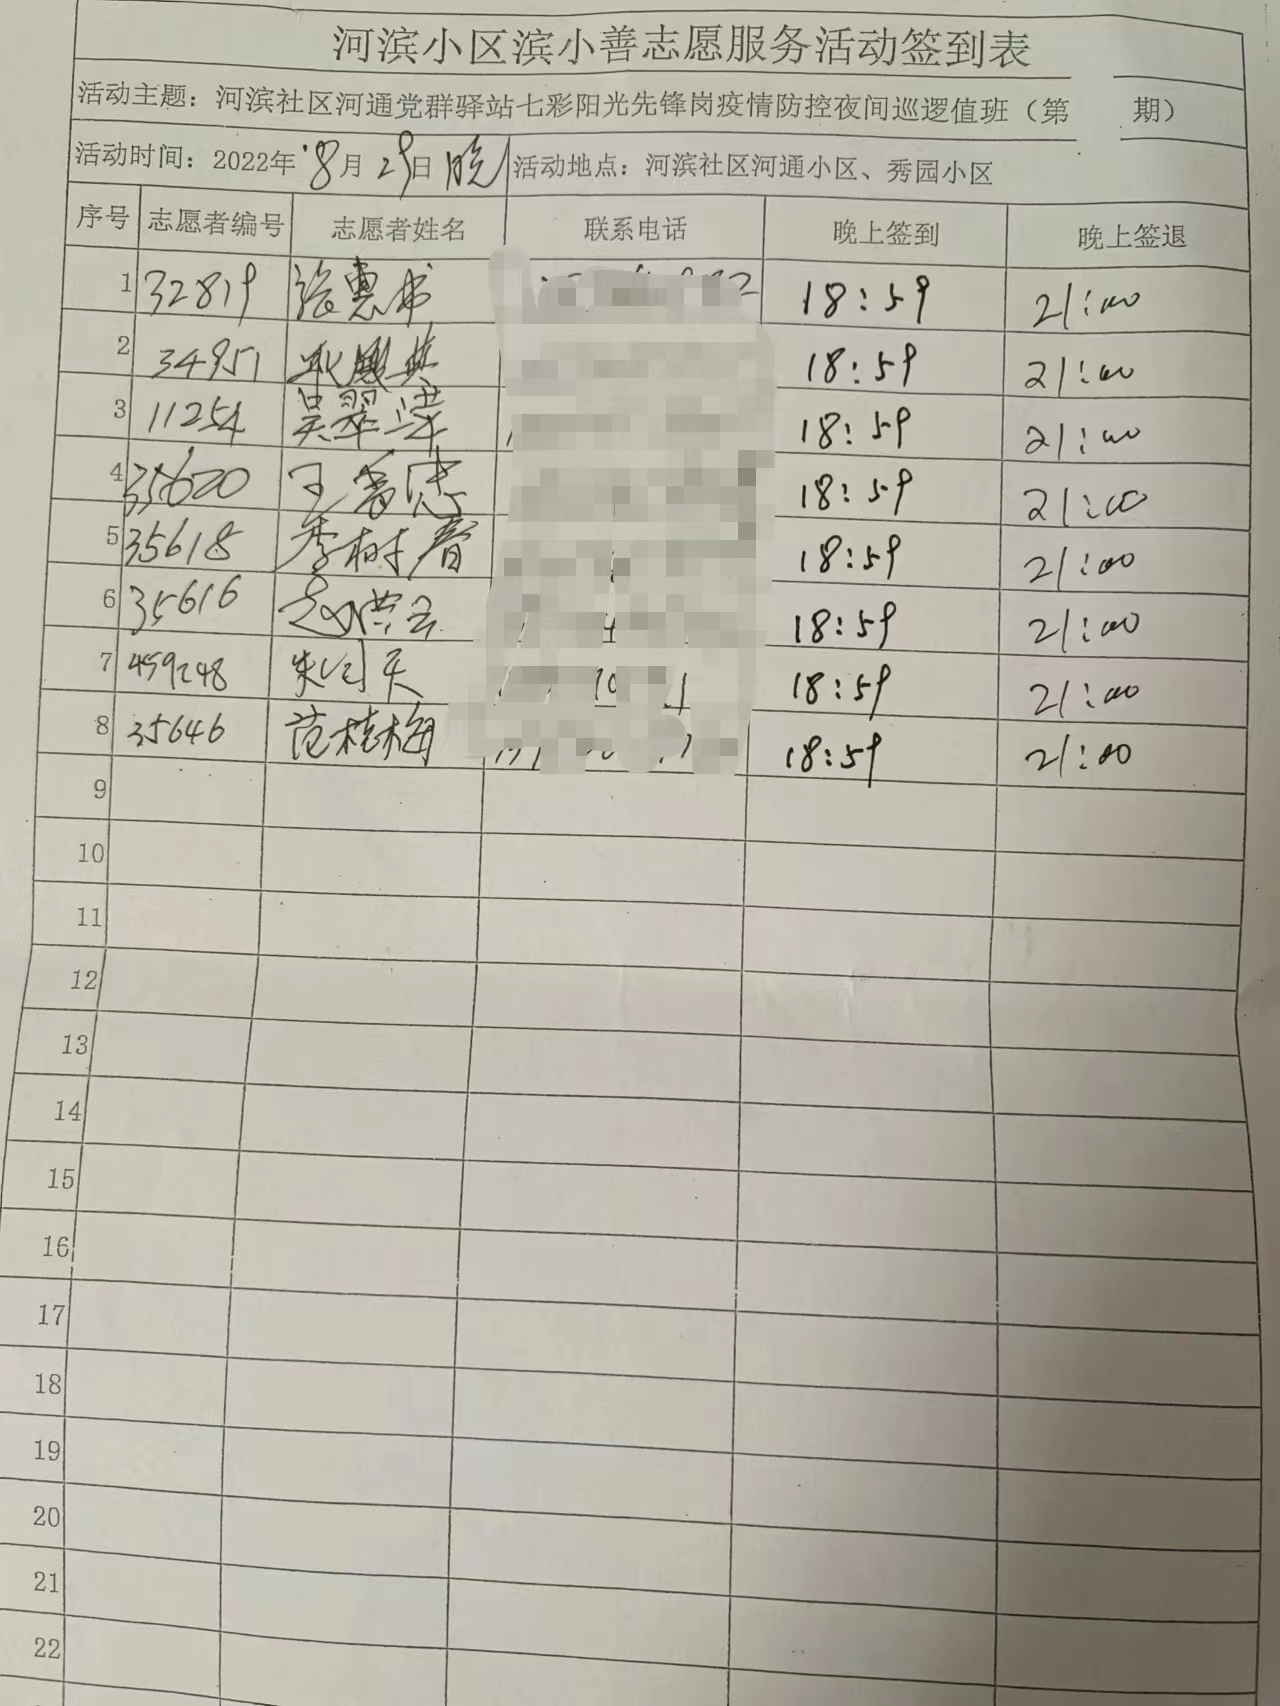 河滨小区滨小善志愿服务活动签到表
活动主题：河滨社区河通党群驿站七彩阳光先锋岗疫情防控夜间巡逻值班（第 期）
活动时间：2022年 8月 29日 晚 活动地点：河滨社区河通小区、秀园小区
序号 志愿者编号 志愿者姓名 联系电话 晚上签到 晚上签退
1 32819 张惠书 18:59 21:00
2 34951 18:59 21:00
3 11254 吴翠泽 18:59 21:00
4 35620 王香忠 18:59 21:00
5 35618 李树春 18:59 21:00
6 35616 赵 云 18:59 21:00
7 459248 朱 天 18:59 21:00
8 35646 范桂梅 18:59 21:00
9
10
11
12
13
14
15
16
17
18
19
20
21
22